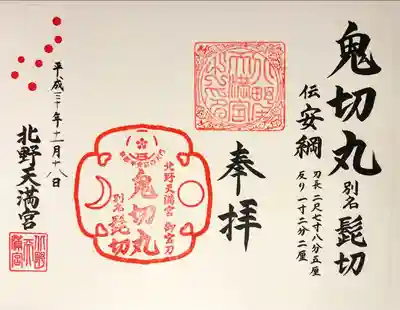 鬼切丸 別名 髭切
伝 安綱
刃長 二尺七寸八分五厘
反り 一寸二分二厘
奉拝
北野天満宮 御宝刀
鬼切丸
別名 髭切
平成三十年十一月十八日
北野天満宮